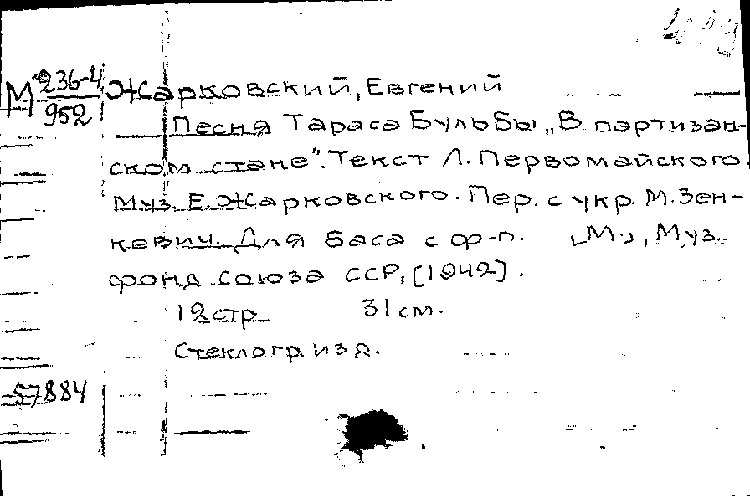 М 236-4
952
Жарковский, Евгений
Песня Тараса Бульбы „В партизан-
ском стане". Текст Л. Первомайского.
Муз. Е. Жарковского. Пер. с укр. М. Зен-
кевич. Для баса с ф-п. М., Муз.
фонд союза ССР, [1942].
12 стр. 31 см.
Стеклогр. изд.
57884